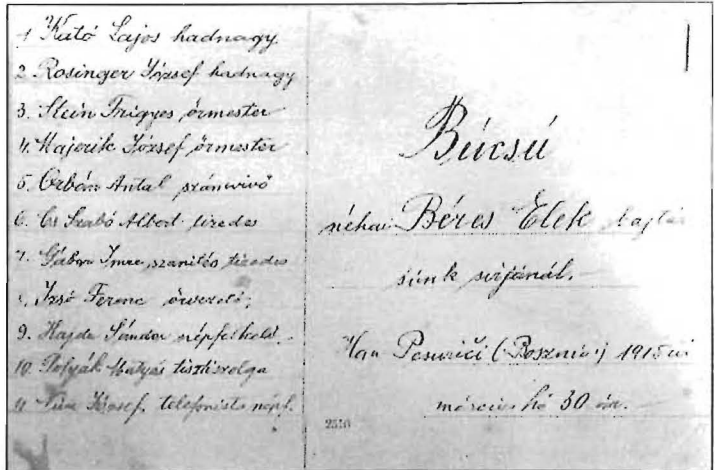 1 Kutó Lajos hadnagy
2. Rosinger József hadnagy
3. Stein Frigyes őrmester
4. Majerik József őrmester
5. Orbán Antal számvivő
6. Cs Szabó Albert tizedes
7. Gábor Imre szanitéc tizedes
Izsó Ferenc őrvezető;
9. Hajdu Sándor népfelkelő.
10. Polyák Mátyás tisztiszolga
11. József telefonista népf.
Búcsú
néhai Béres Elek bajtár
sünk sirjánál.
Han Pesurići (Bosznia) 1915 évi
március hó 30 án.
2510